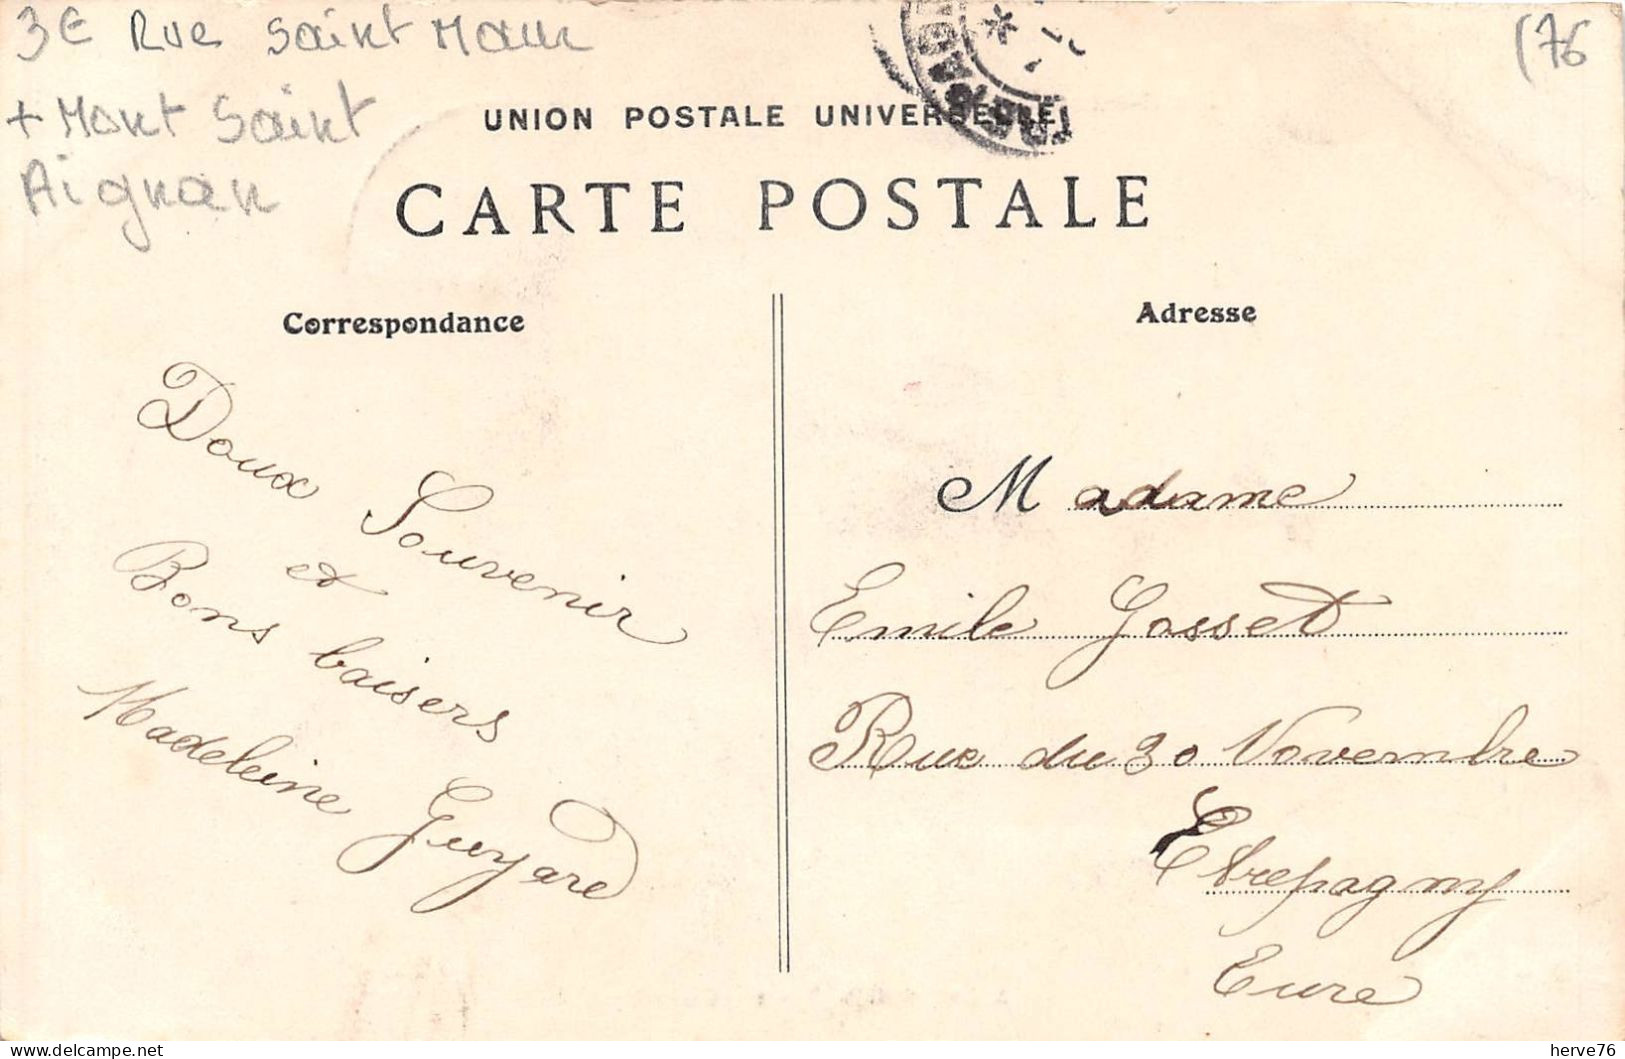 3E Rue Saint Maur
+ Mont Saint
Aignan
(76
UNION POSTALE UNIVERSELLE
CARTE POSTALE
Correspondance
Doux Souvenir
et
Bons baisers
Madeleine Guyard
Adresse
Madame
Emile Gosset
Rue du 30 Novembre
Etrepagny
Eure
delcampe.net
herve76